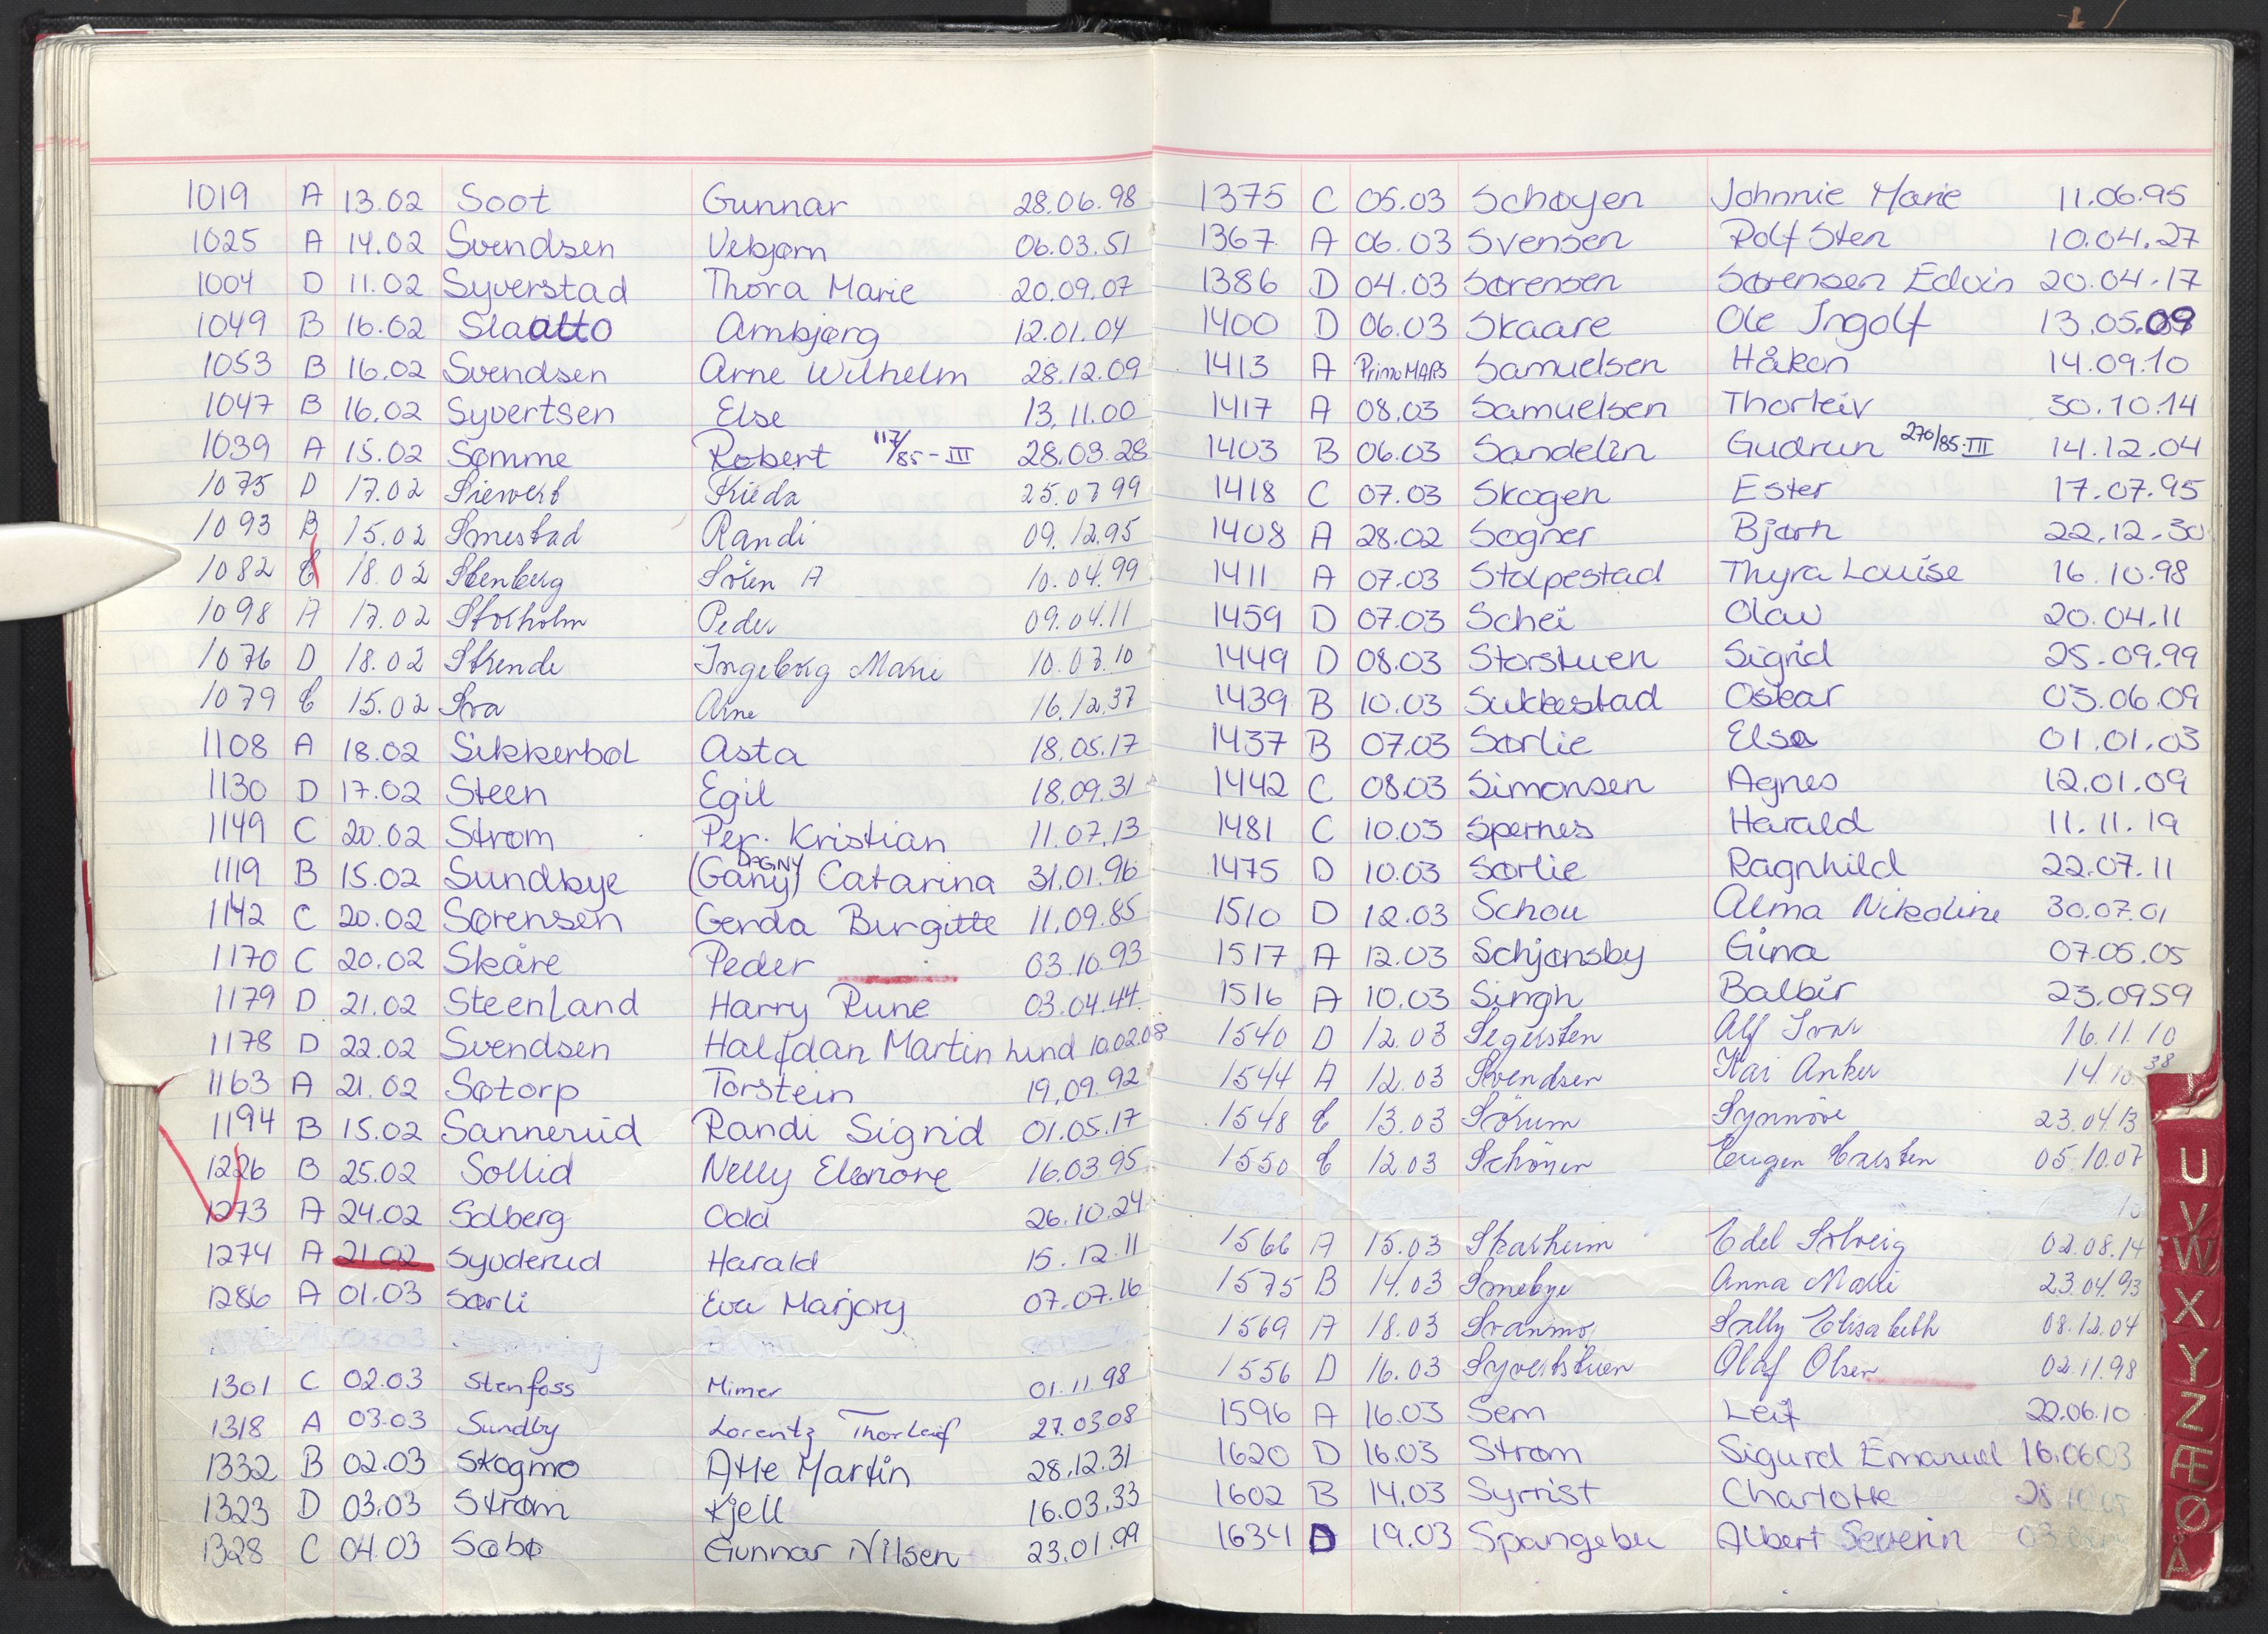 1019 A 13.02 Soot Gunnar 28.06.98
1025 A 14.02 Svendsen Vebjørn 06.03.51
1004 D 11.02 Syverstad Thora Marie 20.09.07
1049 B 16.02 Slaatto Arnbjørg 12.01.04
1053 B 16.02 Svendsen Arne Wilhelm 28.12.09
1047 B 16.02 Syvertsen Else 13.11.00
1039 A 15.02 Sømme Robert 117/85-III 28.03.28
1075 D 17.02 Siewert Frieda 25.07.99
1093 B 15.02 Smestad Randi 09.12.95
1082 C 18.02 Stenberg Sören A 10.04.99
1098 A 17.02 Stokholm Peder 09.04.11
1076 D 18.02 Strende Ingeborg Marie 10.07.10
1079 C 15.02 Sra Arne 16.12.37
1108 A 18.02 Sikkerbøl Asta 18.05.17
1130 D 17.02 Steen Egil 18.09.31
1149 C 20.02 Strøm Per. Kristian 11.07.13
1119 B 15.02 Sundbye (Gany) DAGNY Catarina 31.01.96
1142 C 20.02 Sørensen Gerda Burgitte 11.09.85
1170 C 20.02 Skåre Peder 03.10.93
1179 D 21.02 Steenland Harry Rune 03.04.44
1178 D 22.02 Svendsen Halfdan Martin Lund 10.02.08
1163 A 21.02 Søtorp Torstein 19.09.92
1194 B 15.02 Sannerud Randi Sigrid 01.05.17
1226 B 25.02 Sollid Nelly Elenore 16.03.95
1273 A 24.02 Solberg Odd 26.10.24
1274 A 21.02 Syverud Harald 15.12.11
1286 A 01.03 Sørli Eva Marjory 07.07.16
1301 C 02.03 Stenfoss Mimer 01.11.98
1318 A 03.03 Sundby Lorentz Thorleif 27.03.08
1332 B 02.03 Skogmo Atle Martin 28.12.31
1323 D 03.03 Strøm Kjell 16.03.33
1328 C 04.03 Sæbø Gunnar Nilsen 23.01.99
1375 C 05.03 Schøyen Johnnie Marie 11.06.95
1367 A 06.03 Svensen Rolf Sten 10.04.27
1386 D 04.03 Sørensen Sørensen Edvin 20.04.17
1400 D 06.03 Skaare Ole Ingolf 13.05.09
1413 A Primo MARS Samuelsen Håkon 14.09.10
1417 A 08.03 Samuelsen Thorleiv 30.10.14
1403 B 06.03 Sandelin Gudrun 270/85-III 14.12.04
1418 C 07.03 Skogen Ester 17.07.95
1408 A 28.02 Sogner Bjørn 22.12.30
1411 A 07.03 Stolpestad Thyra Louise 16.10.98
1459 D 07.03 Schei Olav 20.04.11
1449 D 08.03 Storstuen Sigrid 25.09.99
1439 B 10.03 Sukkestad Oskar 03.06.09
1437 B 07.03 Sørlie Elsa 01.01.03
1442 C 08.03 Simonsen Agnes 12.01.09
1481 C 10.03 Spernes Harald 11.11.19
1475 D 10.03 Sørlie Ragnhild 22.07.11
1510 D 12.03 Schou Alma Nikoline 30.07.01
1517 A 12.03 Schjønsby Gina 07.05.05
1516 A 10.03 Singh Balbir 23.0959
1540 D 12.03 Segersten Alf Ivar 16.11.10
1544 A 12.03 Svendsen Kai Anker 14.10 38
1548 C 13.03 Sörum Synnöve 23.04.13
1550 C 12.03 Schöyen Eugen Carsten 05.10.07
10
1566 A 15.03 Skarheim Edel Solveig 02.08.14
1575 B 14.03 Smebye Anna Marie 23.04.93
1569 A 18.03 Svanmo Sally Elisabeth 08.12.04
1556 D 16.03 Syvertstuen Olaf Olsen 02.11.98
1596 A 16.03 Sem Leif 22.06.10
1620 D 16.03 Strøm Sigurd Emanuel 16.0603
1602 B 14.03 Syrrist Charlotte 28
1634 D 19.03 Spangebu Albert Severin 03
U
V
W
X
Y
Z
Æ
Ø
Å